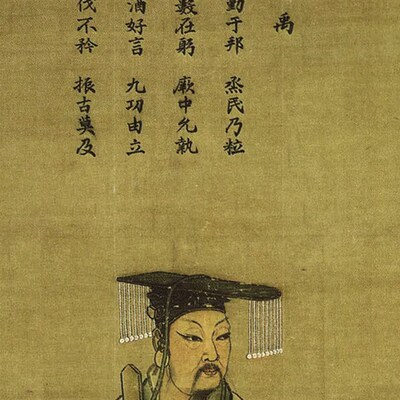 禹
勤于邦 烝民乃粒
數在躬 厥中允執
酒好言 九功由立
伐不矜 振古莫及